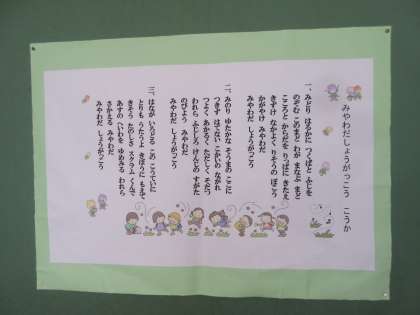 みやわだしょうがっこう　こうか
一、みどり　はるかに　つくばと　ふじを
のぞむ　このまどと　わが　まなぶ　まど
こころと　からだを　りっぱに　きたえ
きずけ　なかよく　りそうの　ぼこう
かがやけ　みやわだ
みやわだ　しょうがっこう
二、みのり　ゆたかな　そうまの　ここに
つきず　はてない　こかいの　ながれ
つよく　あかるく　ただしく　そだつ
われら　ふたしろ　けんじの　すがた
のびよう　みやわだ
みやわだ　しょうがっこう
三、はなが　いろどる　このこうていに
とりも　うたうよ　きぼうに　もえて
きそう　たのしさ　スクラム　くんで
あすの　へいわを　ゆめみる　われら
さかえる　みやわだ
みやわだ　しょうがっこう